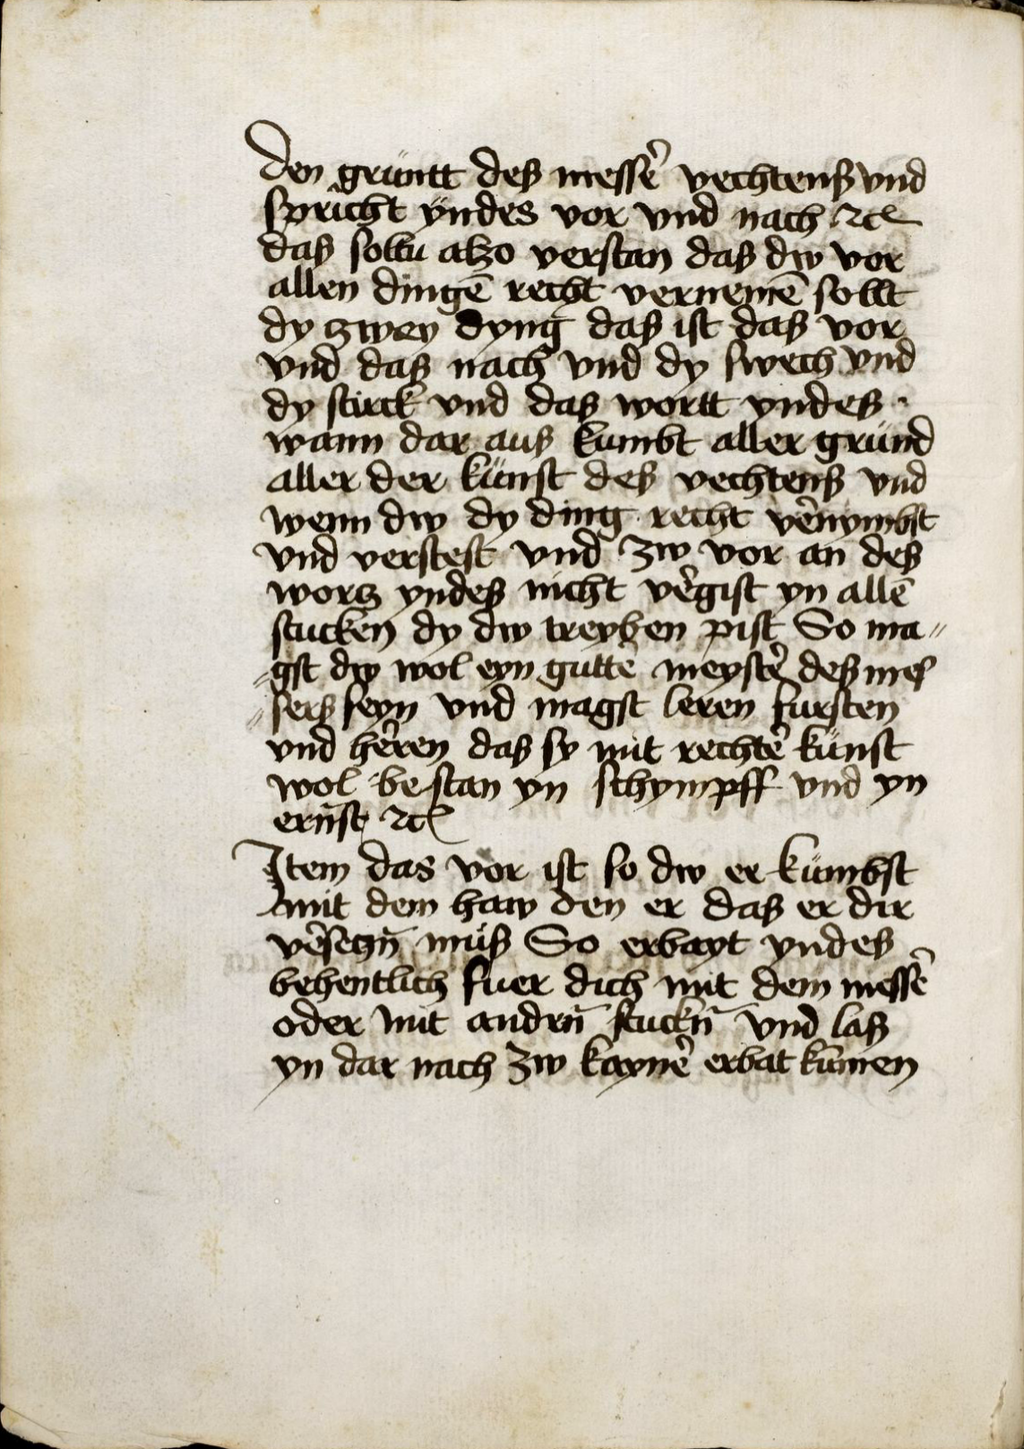 den grüntt deß messer̄ vechtenß vnd
spricht yndes vor vnd nach ⁊c̄
daß soltu alzo verstan daß dw vor
allen dingē recht vernemē sollt
dy zwey dyng daß ist daß vor
vnd daß nach vnd dy swech vnd
dy stirck vnd das wortt yndeß ·
wann dar auß kumbt aller grund
aller der künst deß vechtenß vnd
wenn dw dy ding recht vernymbst
vnd verstest vnd zw vor an deß
wortz yndeß nicht vergist yn allē
stucken dy dw treyben pist So ma〃
〃gst dw wol eyn gutter meyster deß mes
〃serß seyn vnd magst leren fursten
vnd herren das sy mit rechter künst
wol bestan yn schympff vnd yn
ernst ⁊c̄
Item das vor ist so dw er kümbst
mit dem haw den er daß er dir
versetzn̄ müß So erbayt yndeß
behentlich fuer dich mit dem messer
oder mit andrn̄ stuckn̄ vnd laß
yn dar nach zw kayner erbat kūmen